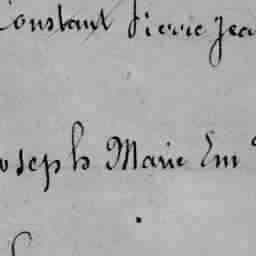 Constant Pierre Jea
oseph Marie Em